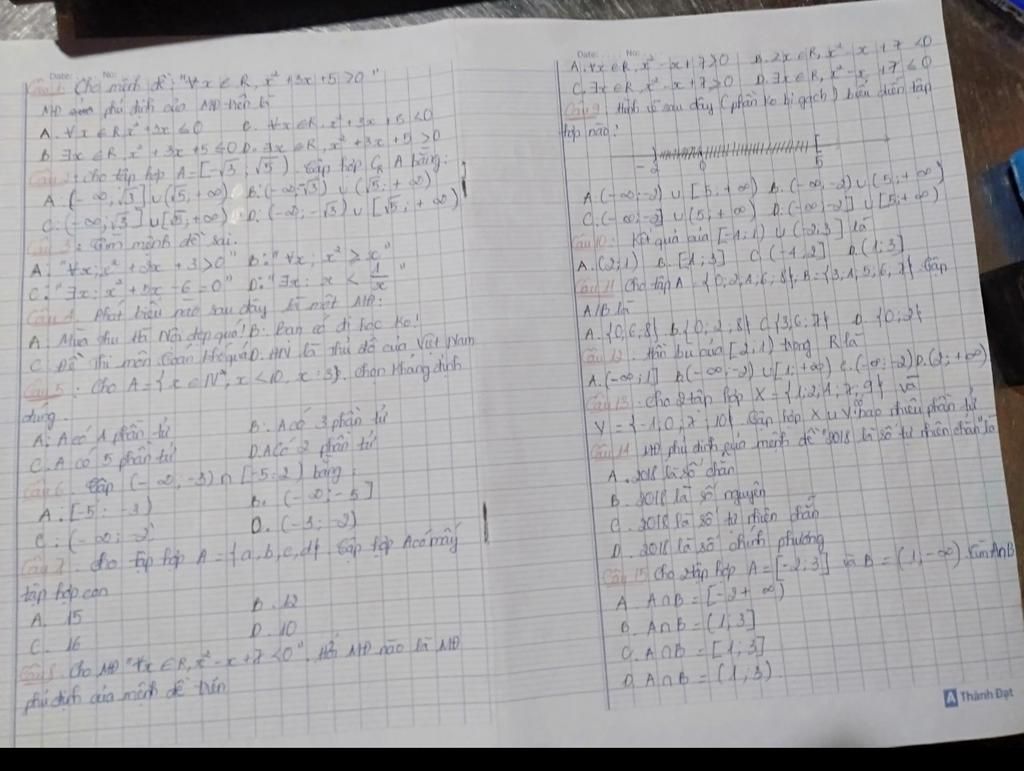 Date: No:
Câu 1: Cho mệnh đề: "∀x ∈ R, x² + 3x + 5 > 0"
MĐ phủ định của MĐ trên là
A. ∀x ∈ R, x² + 3x ≤ 0 C. ∀x ∈ R, x² + 3x + 5 < 0
B ∃x ∈ R, x² + 3x + 5 ≤ 0 D. ∃x ∈ R, x² + 3x + 5 > 0
Câu 2: Cho tập hợp A = [-√3; √5). Tập hợp C_R A bằng:
A: (-∞; √3] ∪ (√5; +∞) B: (-∞; √3) ∪ (√5; +∞)
C: (-∞; √3] ∪ [√5; +∞) D: (-∞; -√3) ∪ [√5; +∞)
Câu 3: Tìm mệnh đề sai.
A: "∀x; x² + 2x + 3 > 0" B: "∀x; x² > x"
C: "∃x; x² + 5x - 6 = 0" D: "∃x: x < 1/x"
Câu 4. Phát biểu nào sau đây là một MĐ:
A: Mùa thu Hà Nội đẹp quá! B: Bạn có đi học ko!
C Đề thi môn Toán khó quá D. HN là thủ đô của Việt Nam
Câu 5: Cho A = {x ∈ N*, x < 10, x ⋮ 3}. chọn khẳng định
đúng.
A: A có 4 phần tử B: A có 3 phần tử
C. A có 5 phần tử D. A có 2 phần tử
Câu 6. Tập (-∞; -3) ∩ [-5; 2) bằng:
A: [-5; -3) B. (-∞; -5]
C: (-∞; -2 D. (-3; -2)
Câu 7. Cho tập hợp A = {a, b, c, d}. Tập hợp A có mấy
tập hợp con
A. 15 B. 12
C. 16 D. 10
Câu 8. Cho MĐ "∀x ∈ R, x² - x + 7 < 0". Hỏi MĐ nào là MĐ
phủ định của mệnh đề trên
Date: No:
A. ∀x ∈ R, x² - x + 7 > 0 B. ∃x ∈ R, x² - x + 7 < 0
C. ∃x ∈ R, x² - x + 7 > 0 D. ∃x ∈ R, x² - x + 7 ≤ 0
Câu 9 Hình vẽ sau đây (phần ko bị gạch) biểu diễn tập
hợp nào?
-2 0 5
A: (-∞; -2) ∪ [5; +∞) B. (-∞, -2) ∪ (5; +∞)
C: (-∞; -2] ∪ (5; +∞) D: (-∞; -2] ∪ [5; +∞)
Câu 10. Kết quả của [-4; 1) ∪ (-2; 3] là
A. (2; 1) B. [-4; 3] C. (-4, 2] D. (1; 3]
Câu 11 Cho tập A = {0; 2; 4; 6; 8}, B = {3; 4; 5; 6; 7}. Tập
A\B là
A. {0; 6; 8} B. {0; 2; 8} C. {3; 6; 7} D. {0; 2}
Câu 12. Phần bù của [-2; 1) trong R là
A. (-∞; 1] B. (-∞; -2) ∪ [1; +∞) C. (-∞; -2) D. (2; +∞)
Câu 13. Cho 2 tập hợp X = {1; 2; 4; 7; 9} và
Y = {-1; 0; 7; 10}. Tập hợp X ∪ Y bao nhiêu phần tử
Câu 14 MĐ phủ định của mệnh đề "2018 là số tự nhiên chẵn" là
A. 2018 là số chẵn
B. 2018 là số nguyên
C. 2018 là số tự nhiên chẵn
D. 2018 là số chính phương
Câu 15 Cho 2 tập hợp A = [-2; 3] và B = (1; -∞). Tìm A∩B
A. A∩B = [-2 + ∞)
B. A∩B = (1; 3]
C. A∩B = [1; 3]
D. A∩B = (1; 3)
Thành Đạt